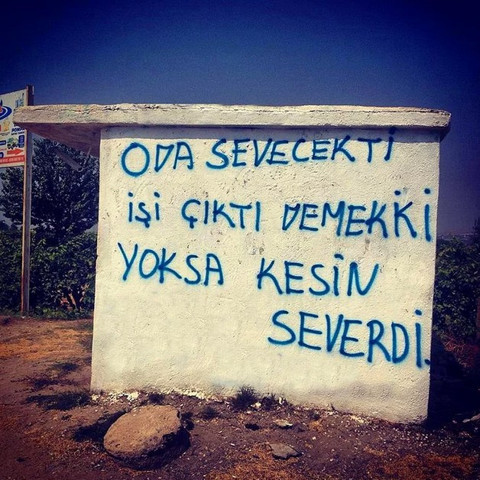 ODA SEVECEKTİ
İŞİ ÇIKTI DEMEKKİ
YOKSA KESİN
SEVERDİ.